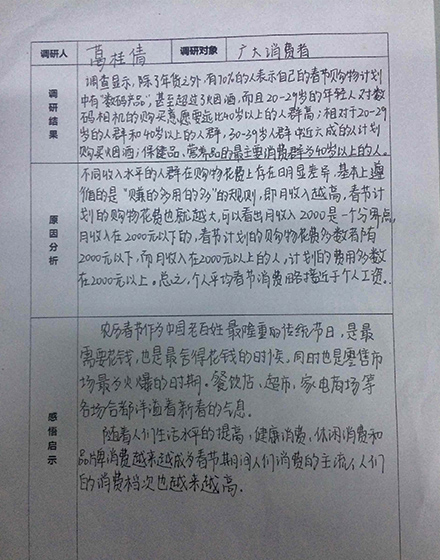 调研人 高桂倩 调研对象 广大消费者
调研结果
调查显示,除了年货之外,有70%的人表示自己的春节购物计划
中有“数码产品”,甚至超过了烟酒,而且20-29岁的年轻人对数
码相机的购买意愿要远比40岁以上的人群高;相对于20-29
岁的人群和40岁以上的人群,30-39岁人群中近六成的人计划
购买烟酒;保健品、营养品的最主要消费群为40岁以上的人。
原因分析
不同收入水平的人群在购物花费上存在明显差异,基本上遵
循的是“赚的多用的多”的规则,即月收入越高,春节计
划的购物花费也就越大,可以看出月收入2000是一个分界点,
月收入在2000元以下的,春节计划的购物花费多数都在
2000元以下,而月收入在2000元以上的人,计划的费用多数
在2000元以上。总之,个人平均春节消费略接近于个人工资。
感悟启示
农历春节作为中国老百姓最隆重的传统节日,是最
需要花钱,也是最舍得花钱的时候,同时也是零售市
场最为火爆的时期。餐饮店、超市、家电商场等
各场合都洋溢着新春的气息。
随着人们生活水平的提高,健康消费,休闲消费和
品牌消费越来越成为春节期间人们消费的主流,人们
的消费档次也越来越高。